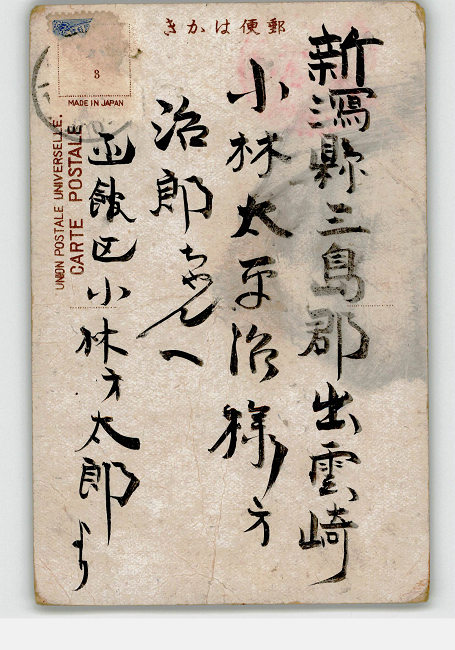 きかは便郵
新潟縣三島郡出雲崎
小林太平治様方
治郎ちゃんへ
函館区小林方太郎より
3
MADE IN JAPAN
UNION POSTALE UNIVERSELLE.
CARTE POSTALE